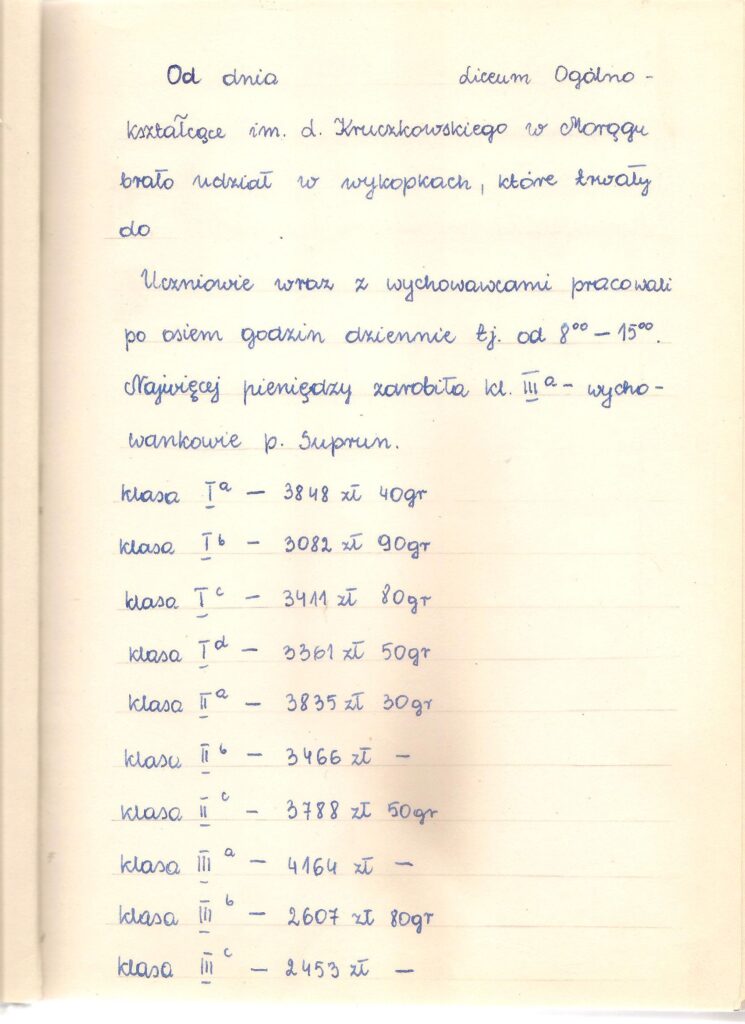 Od dnia Liceum Ogólno-
kształcące im. L. Kruczkowskiego w Morągu
brało udział w wykopkach, które trwały
do
Uczniowie wraz z wychowawcami pracowali
po osiem godzin dziennie tj. od 8⁰⁰ – 15⁰⁰.
Najwięcej pieniędzy zarobiła kl. IIIᵃ – wycho-
wankowie p. Suprun.
klasa Iᵃ – 3848 zł 40gr
klasa Iᵇ – 3082 zł 90gr
klasa Iᶜ – 3411 zł 80gr
klasa Iᵈ – 3361 zł 50gr
klasa IIᵃ – 3835 zł 30gr
klasa IIᵇ – 3466 zł –
klasa IIᶜ – 3788 zł 50gr
klasa IIIᵃ – 4164 zł –
klasa IIIᵇ – 2607 zł 80gr
klasa IIIᶜ – 2453 zł –